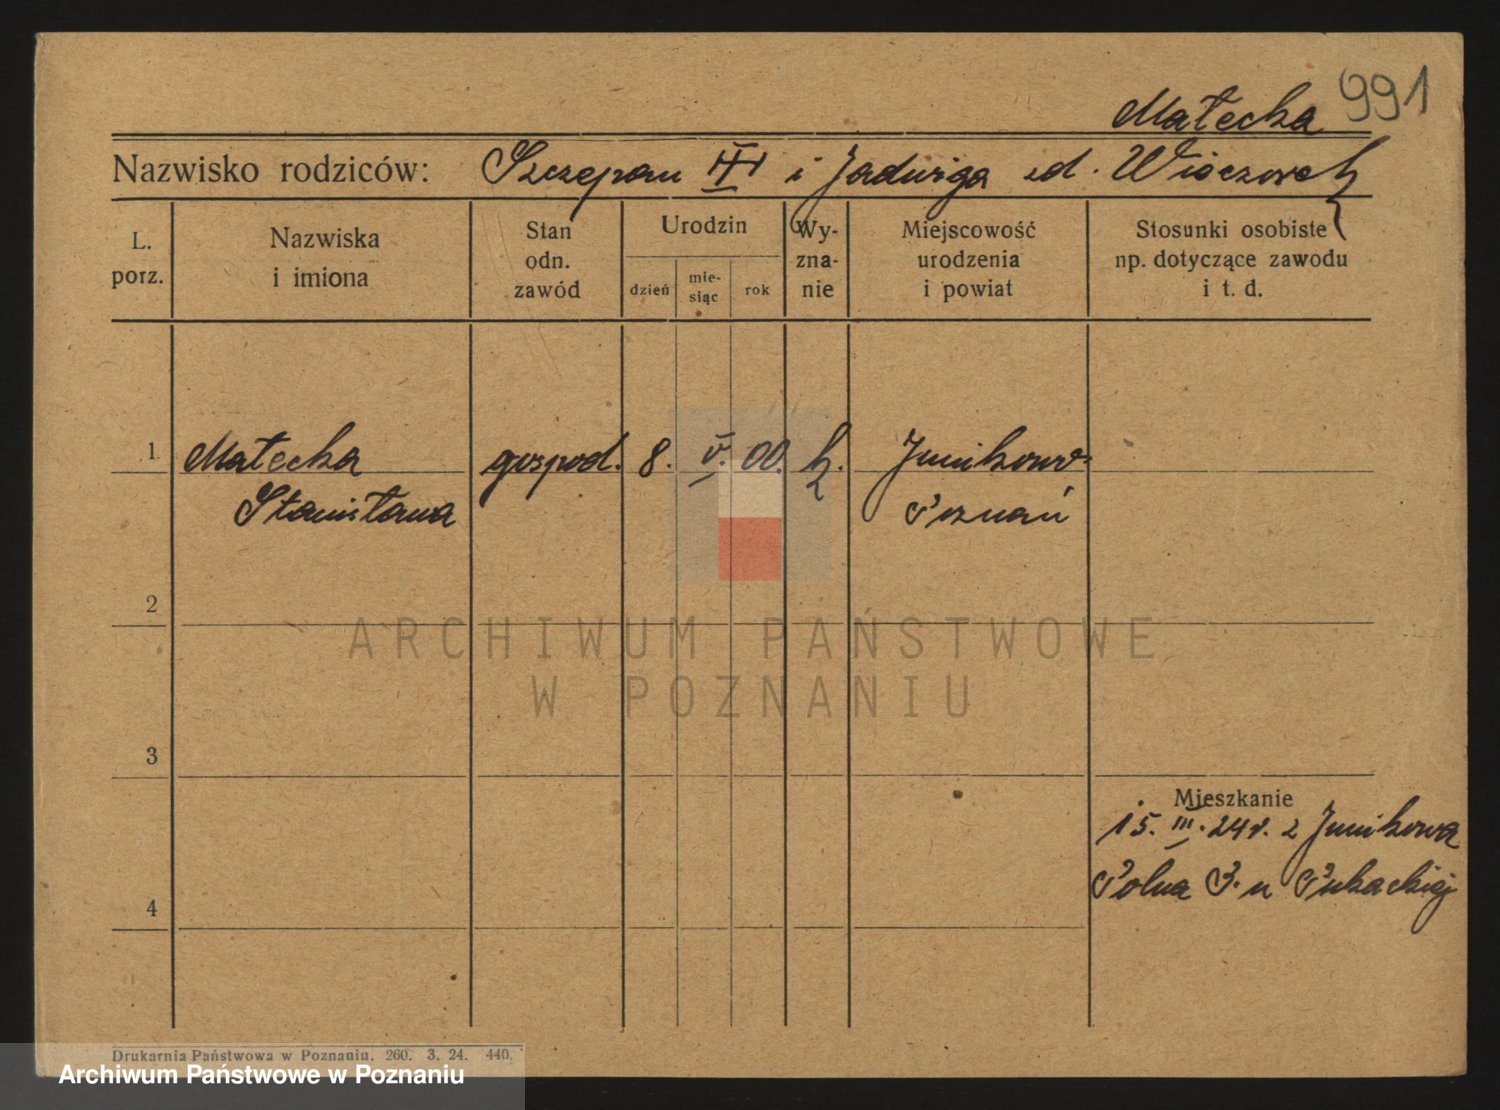 991
Małecka
Nazwisko rodziców: Szczepan i Jadwiga zd.
L. porz.
Nazwiska i imiona
Stan odn. zawód
Urodzin
dzień
mie- siąc
rok
Wy- zna- nie
Miejscowość urodzenia i powiat
Stosunki osobiste np. dotyczące zawodu i t. d.
1 Małecka gospod. 8. V. 00. k. Junikowo
Stanisława Poznań
2
ARCHIWUM PAŃSTWOWE
W POZNANIU
3
Mieszkanie
15. III. 24 r. z Junikowa
4
Polna 3. u
Drukarnia Państwowa w Poznaniu. 260. 3. 24. 440.
Archiwum Państwowe w Poznaniu